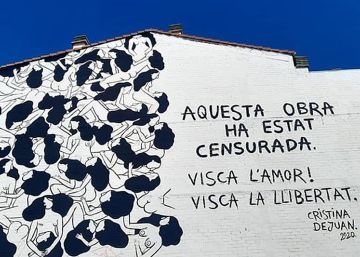 AQUESTA OBRA
HA ESTAT
CENSURADA.
VISCA L'AMOR!
VISCA LA LLIBERTAT.
CRISTINA
DEJUAN.
2020